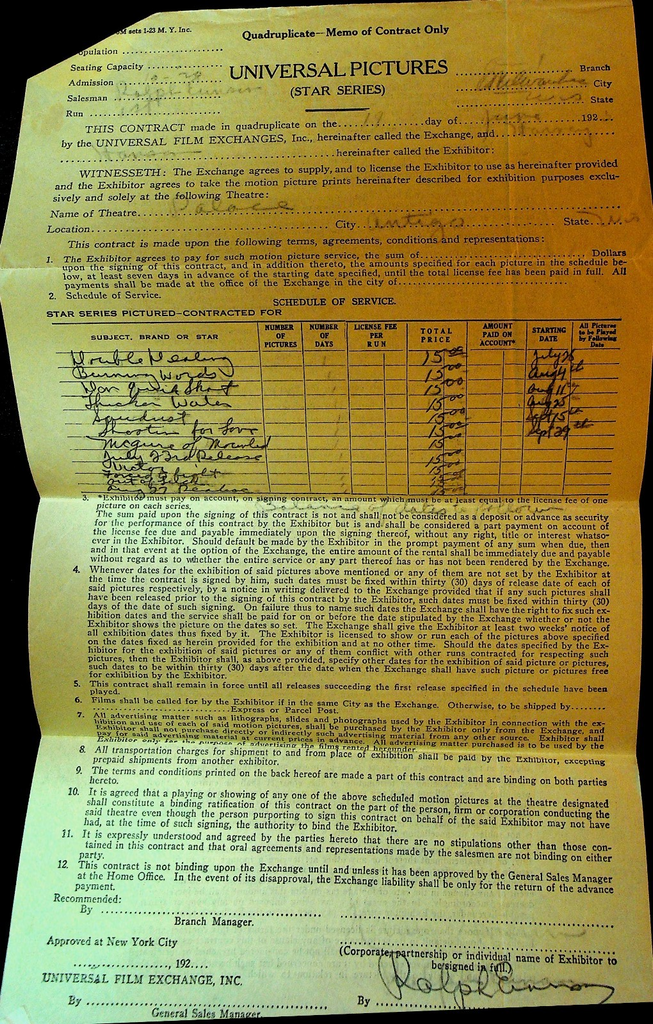 M sets 1-23 M. Y. Inc.
Quadruplicate—Memo of Contract Only
opulation
Seating Capacity
Admission
Salesman Ralph
Run
UNIVERSAL PICTURES
(STAR SERIES)
Milwaukee Branch
City
State
THIS CONTRACT made in quadruplicate on the day of June 192
by the UNIVERSAL FILM EXCHANGES, Inc., hereinafter called the Exchange, and
hereinafter called the Exhibitor:
WITNESSETH: The Exchange agrees to supply, and to license the Exhibitor to use as hereinafter provided
and the Exhibitor agrees to take the motion picture prints hereinafter described for exhibition purposes exclu-
sively and solely at the following Theatre:
Name of Theatre Palace
Location City Antigo State Wis
This contract is made upon the following terms, agreements, conditions and representations:
1. The Exhibitor agrees to pay for such motion picture service, the sum of Dollars
upon the signing of this contract, and in addition thereto, the amounts specified for each picture in the schedule be-
low, at least seven days in advance of the starting date specified, until the total license fee has been paid in full. All
payments shall be made at the office of the Exchange in the city of
2. Schedule of Service.
SCHEDULE OF SERVICE.
STAR SERIES PICTURED—CONTRACTED FOR
SUBJECT, BRAND OR STAR NUMBER OF PICTURES NUMBER OF DAYS LICENSE FEE PER RUN TOTAL PRICE AMOUNT PAID ON ACCOUNT* STARTING DATE All Pictures to be Played by Following Date
Double Dealing 15.00 July 28
Burning Words 15.00 Aug 4th
Don Quick Shot 15.00 Aug 11th
Thicker Water 15.00 Aug 25
Sawdust 15.00 Sept 15th
Shootin for Love 15.00 Sept 29th
McGuire of Mounted 15.00
July 23rd Release 15.00
Victor 15.00
15.00
15.00
15.00
3. *Exhibitor must pay on account, on signing contract, an amount which must be at least equal to the license fee of one
picture on each series. Balance of dates to follow
The sum paid upon the signing of this contract is not and shall not be considered as a deposit or advance as security
for the performance of this contract by the Exhibitor but is and shall be considered a part payment on account of
the license fee due and payable immediately upon the signing thereof, without any right, title or interest whatso-
ever in the Exhibitor. Should default be made by the Exhibitor in the prompt payment of any sum when due, then
and in that event at the option of the Exchange, the entire amount of the rental shall be immediately due and payable
without regard as to whether the entire service or any part thereof has or has not been rendered by the Exchange.
4. Whenever dates for the exhibition of said pictures above mentioned or any of them are not set by the Exhibitor at
the time the contract is signed by him, such dates must be fixed within thirty (30) days of release date of each of
said pictures respectively, by a notice in writing delivered to the Exchange provided that if any such pictures shall
have been released prior to the signing of this contract by the Exhibitor, such dates must be fixed within thirty (30)
days of the date of such signing. On failure thus to name such dates the Exchange shall have the right to fix such ex-
hibition dates and the service shall be paid for on or before the date stipulated by the Exchange whether or not the
Exhibitor shows the picture on the dates so set. The Exchange shall give the Exhibitor at least two weeks' notice of
all exhibition dates thus fixed by it. The Exhibitor is licensed to show or run each of the pictures above specified
on the dates fixed as herein provided for the exhibition and at no other time. Should the dates specified by the Ex-
hibitor for the exhibition of said pictures or any of them conflict with other runs contracted for respecting such
pictures, then the Exhibitor shall, as above provided, specify other dates for the exhibition of said picture or pictures,
such dates to be within thirty (30) days after the date when the Exchange shall have such picture or pictures free
for exhibition by the Exhibitor.
5. This contract shall remain in force until all releases succeeding the first release specified in the schedule have been
played.
6. Films shall be called for by the Exhibitor if in the same City as the Exchange. Otherwise, to be shipped by
Express or Parcel Post.
7. All advertising matter such as lithographs, slides and photographs used by the Exhibitor in connection with the ex-
hibition and use of each of said motion pictures, shall be purchased by the Exhibitor only from the Exchange, and
Exhibitor shall not purchase directly or indirectly such advertising material from any other source. Exhibitor shall
pay for said advertising material at current prices in advance. All advertising matter purchased is to be used by the
Exhibitor only for the purpose of advertising the films rented hereunder.
8. All transportation charges for shipment to and from place of exhibition shall be paid by the Exhibitor, excepting
prepaid shipments from another exhibitor.
9. The terms and conditions printed on the back hereof are made a part of this contract and are binding on both parties
hereto.
10. It is agreed that a playing or showing of any one of the above scheduled motion pictures at the theatre designated
shall constitute a binding ratification of this contract on the part of the person, firm or corporation conducting the
said theatre even though the person purporting to sign this contract on behalf of the said Exhibitor may not have
had, at the time of such signing, the authority to bind the Exhibitor.
11. It is expressly understood and agreed by the parties hereto that there are no stipulations other than those con-
tained in this contract and that oral agreements and representations made by the salesmen are not binding on either
party.
12. This contract is not binding upon the Exchange until and unless it has been approved by the General Sales Manager
at the Home Office. In the event of its disapproval, the Exchange liability shall be only for the return of the advance
payment.
Recommended:
By
Branch Manager.
Approved at New York City
, 192
(Corporate, partnership or individual name of Exhibitor to
be signed in full.)
UNIVERSAL FILM EXCHANGE, INC.
By
General Sales Manager.
By Ralph